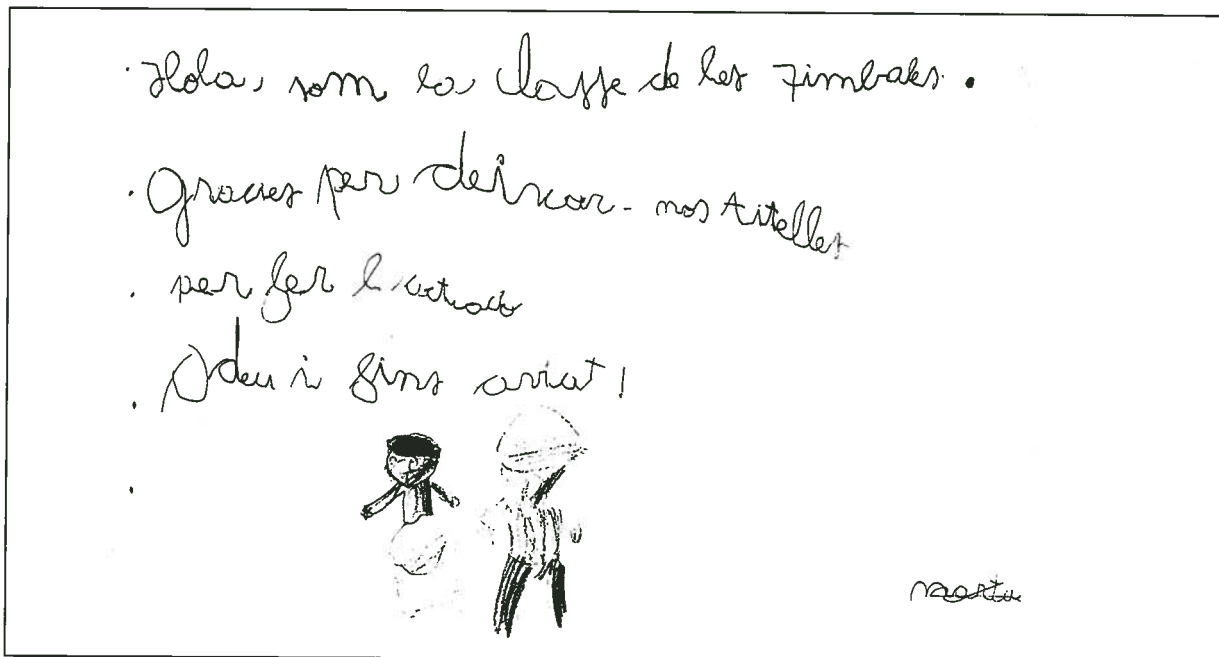 Hola, som la classe de les timbales.
Gracies per deixar-nos titelles
per fer l'actuació
Adeu i fins aviat!
Marta